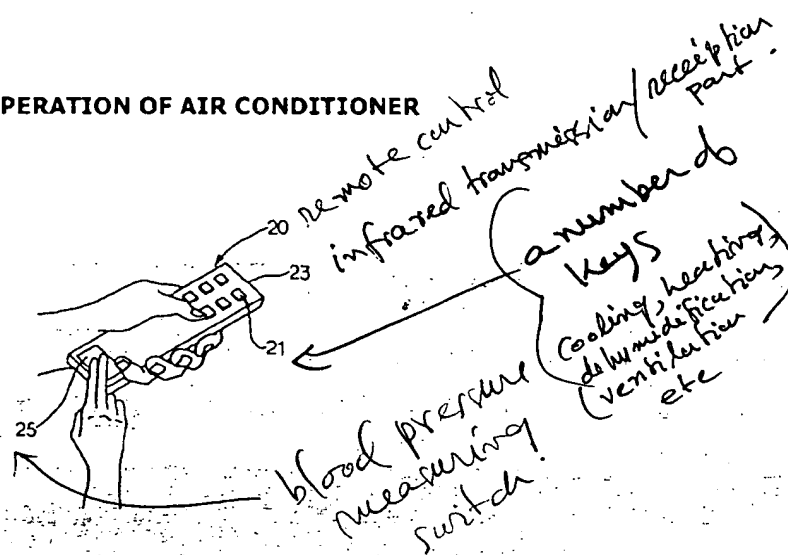 PERATION OF AIR CONDITIONER
20 remote control
23 infrared transmission/reception
part.
21
a number of
keys
cooling, heating,
dehumidification,
(ventilation
etc
25
blood pressure
measuring
switch.